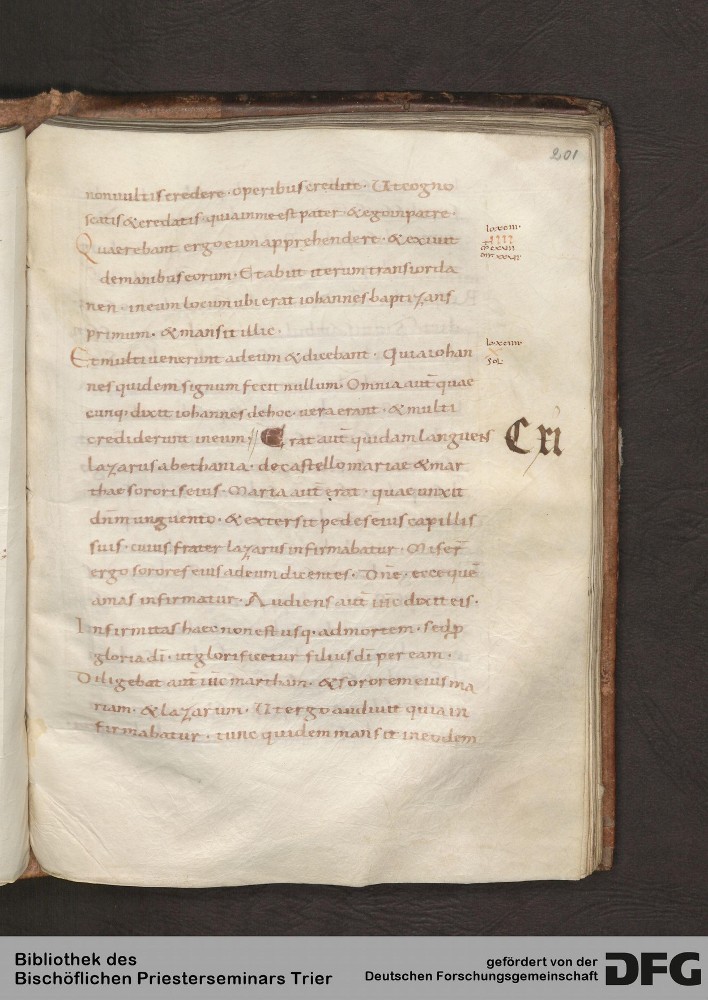 201
non uultis credere · operibus credite · Ut cogno
scatis & credatis quia in me est pater · & ego in patre ·
Quaerebant ergo eum apprehendere · & exiuit
de manibus eorum · Et abiit iterum trans iorda
nen · in eum locum ubi erat iohannes baptizans
primum · & mansit illic ·
Et multi uenerunt ad eum & dicebant · Quia iohan
nes quidem signum fecit nullum · Omnia aut quae
cunq · dixit iohannes de hoc · uera erant · & multi
crediderunt in eum · // Erat aut quidam languens
Cxi
lazarus a bethania · de castello mariae & mar
thae sororis eius · Maria aut erat · quae unxit
dnm unguento · & extersit pedes eius capillis
suis · cuius frater lazarus infirmabatur · Miser
ergo sorores eius ad eum dicentes · Dne · ecce que
amas infirmatur · Audiens aut ihc dixit eis ·
Infirmitas haec non est usq · ad mortem · sed p
gloria di · ut glorificetur filius di per eam ·
Diligebat aut ihc martham · & sororem eius ma
riam · & lazarum · Ut ergo audiuit quia in
firmabatur · tunc quidem mansit in eodem
Bibliothek des
Bischöflichen Priesterseminars Trier
gefördert von der
Deutschen Forschungsgemeinschaft
DFG